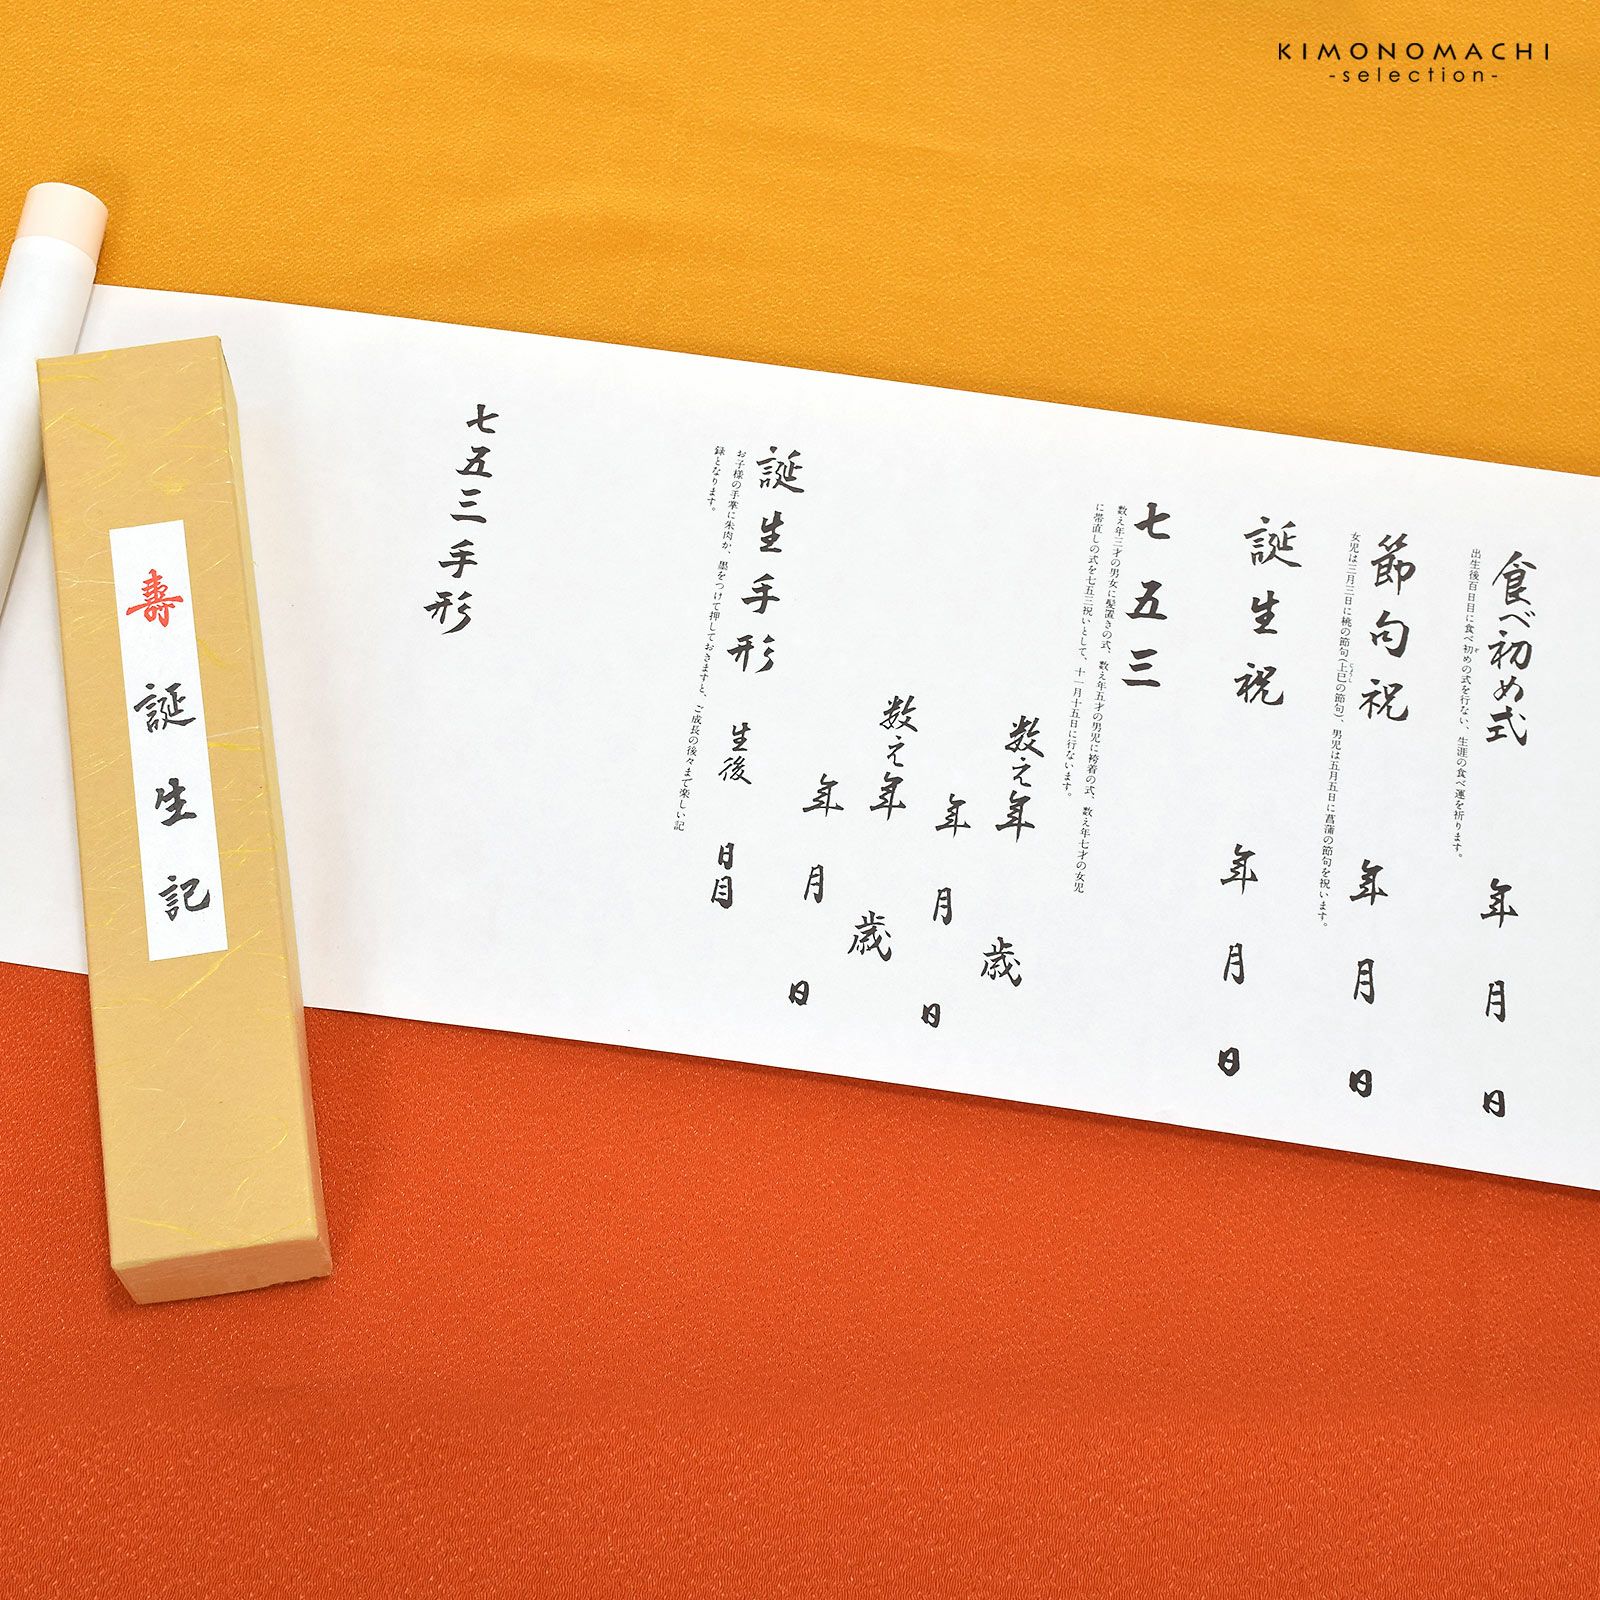 KIMONOMACHI
-selection-
食べ初め式
出生後百日目に食べ初めの式を行ない、生涯の食べ運を祈ります。
年 月 日
節句祝
女児は三月三日に桃の節句(上巳の節句)、男児は五月五日に菖蒲の節句を祝います。
年 月 日
誕生祝
年 月 日
七五三
数え年三才の男女に髪置きの式、数え年五才の男児に袴着の式、数え年七才の女児
に帯直しの式を七五三祝いとして、十一月十五日に行ないます。
数え年 歳
年 月 日
数え年 歳
年 月 日
誕生手形 生後 日目
お子様の手掌に朱肉か、墨をつけて押しておきますと、ご成長の後々まで楽しい記
録となります。
七五三手形
寿 誕生記